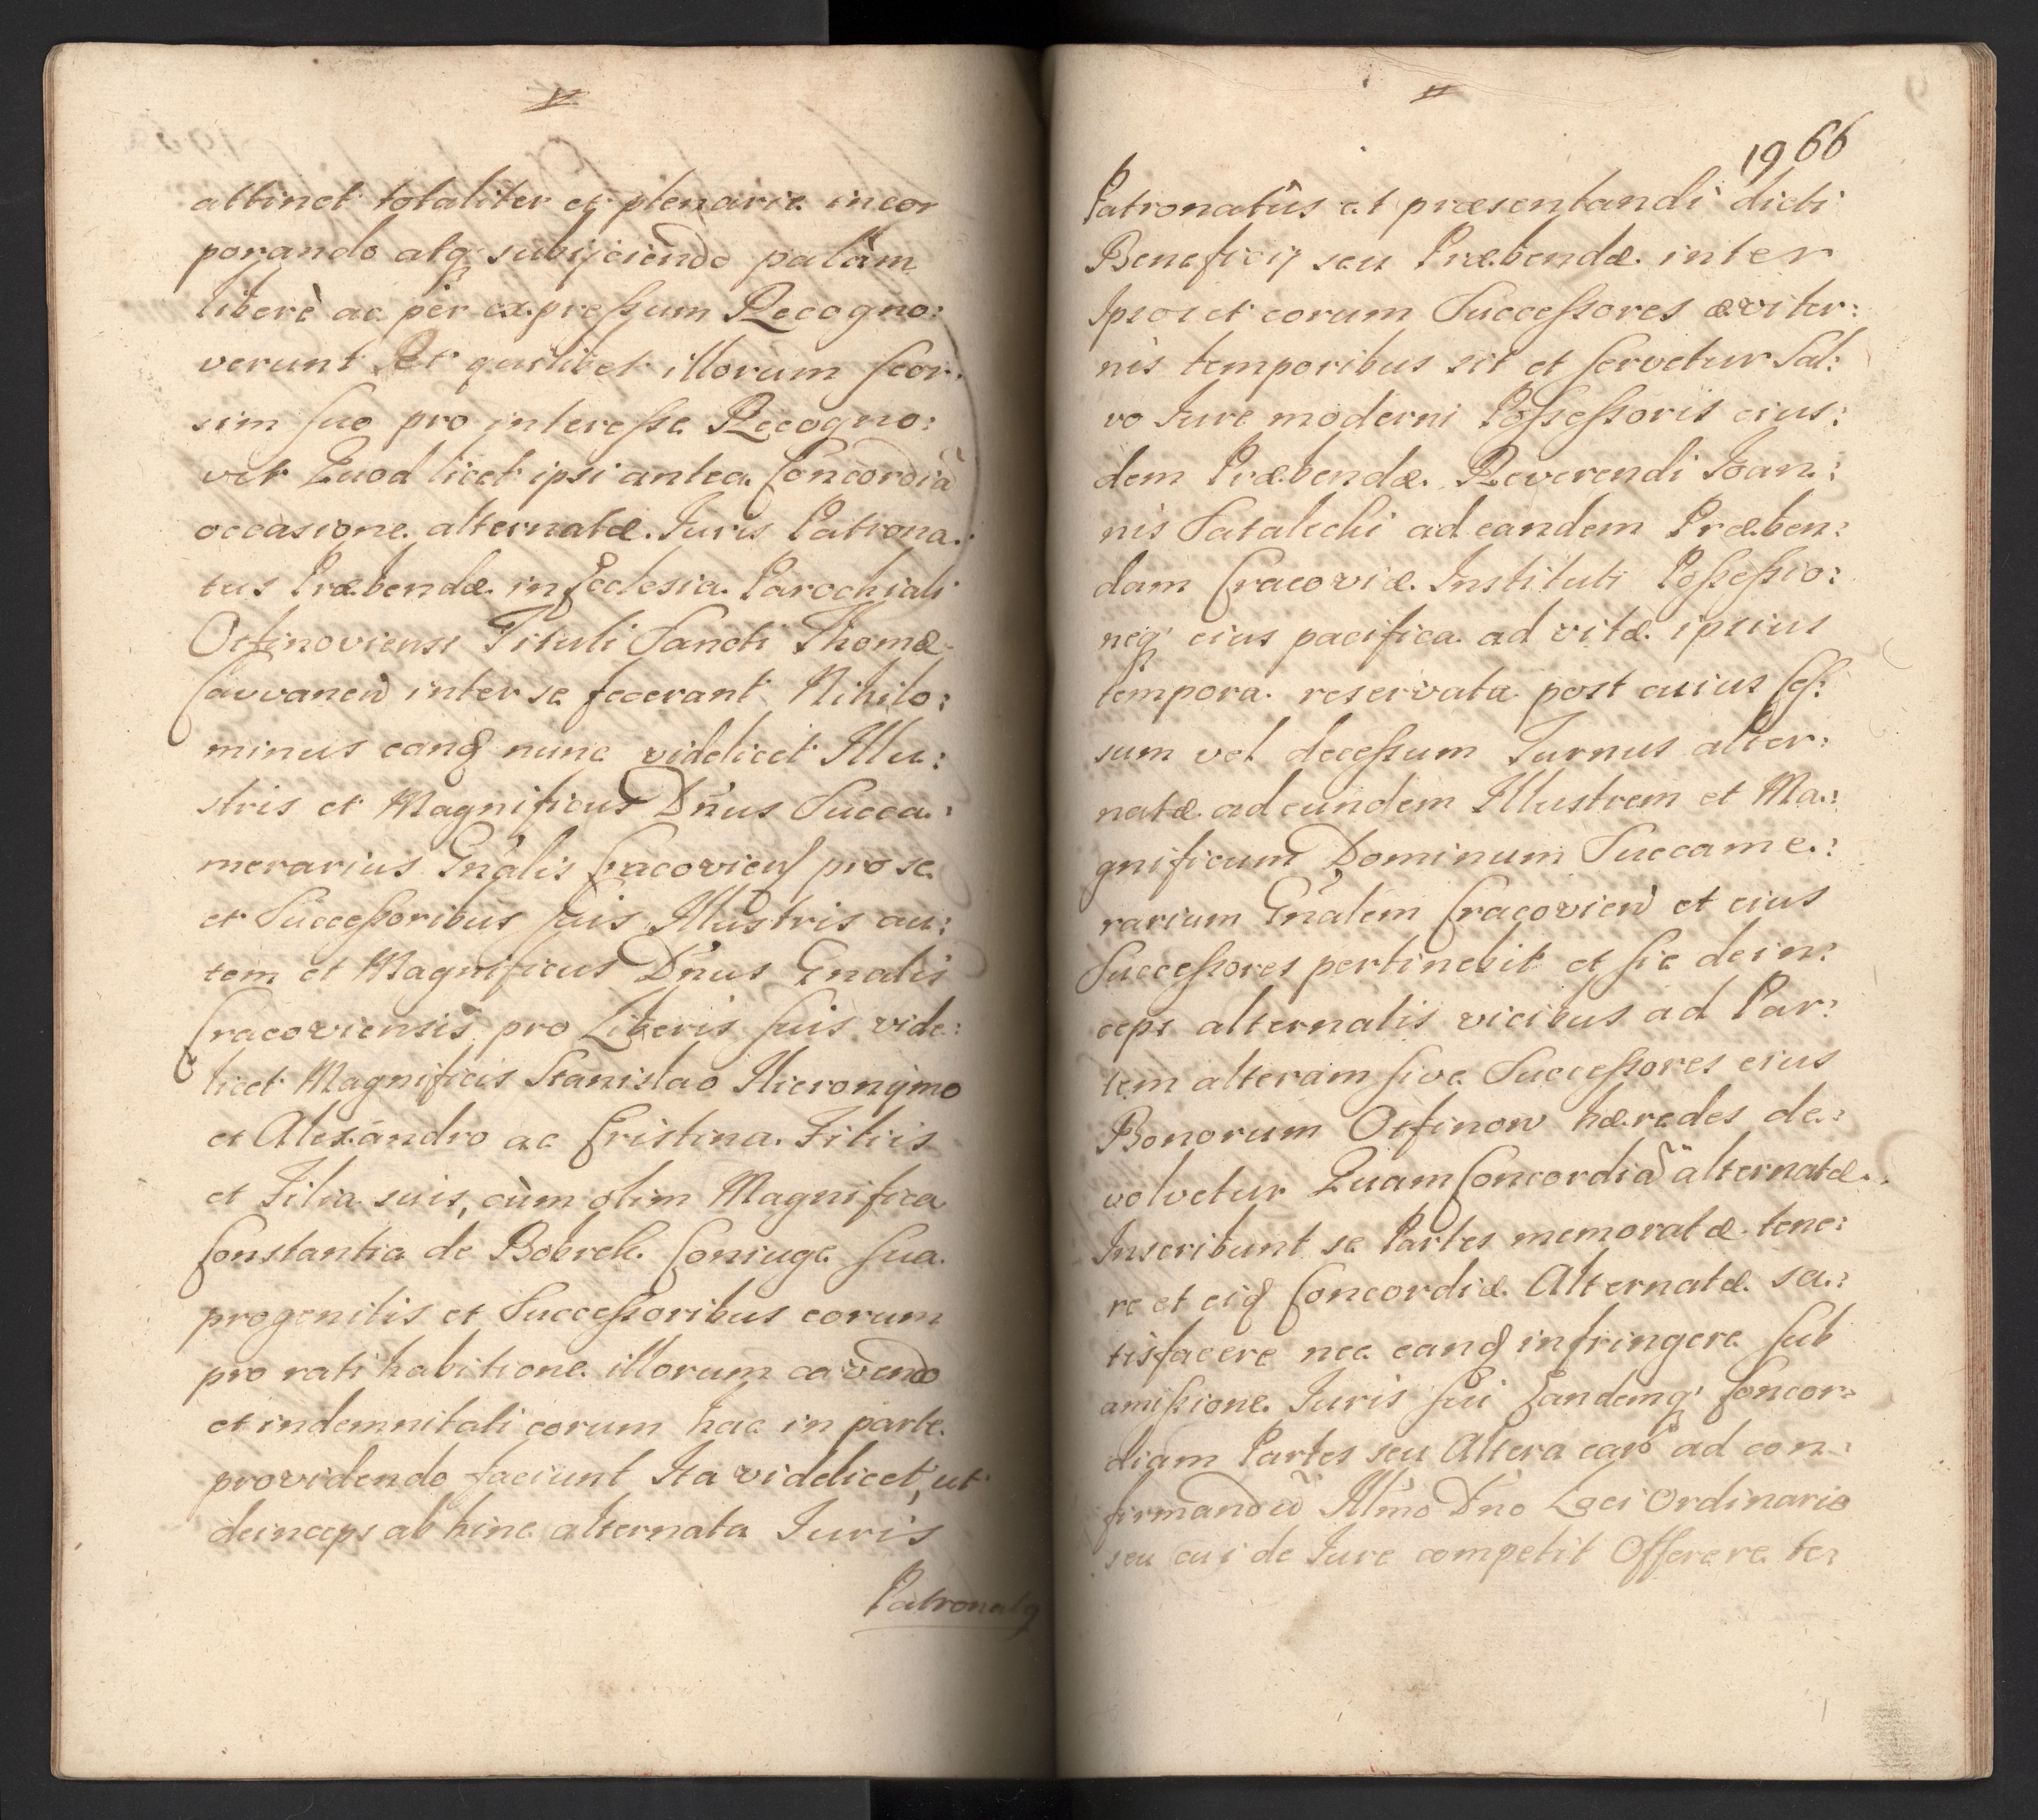 attinet totaliter et plenarie incor
porando atq subijciendo palàm
liberè ac per expressum Recogno:
verunt Et quilibet illorum seor:
sim suo pro interesse Recogno:
vit Quod licet ipsi antea Concordiã
occasione alternatæ Iuris Patrona:
tus Præbendæ in Ecclesia Parochiali
Osfinoviensi Tituli Sancti Thomæ
inter se fecerant Nihilo:
minus eand nunc videlicet Illu:
stris et Magnificus Dnus Succa:
merarius Gnalis Cracovien pro se
et Successoribus suis Illustris au:
tem et Magnificus Dnus Gnalis
Cracoviensis pro Liberis suis vide:
licet Magnificis Stanislao Hieronymo
et Alexandro ac Cristina Filiis
et Filia suis, cùm olim Magnifica
Constantia de Bobrek Coniuge sua
progenitis et Successoribus eorum
pro rati habitione illorum cavendo
et indemnitati eorum hac in parte
providendo faciunt Ita videlicet, ut
deinceps ab hinc alternata Iuris
Patronatq
1966
Patronatûs et præsentandi dicti
Beneficij seu Præbendæ inter
Ipsos et eorum Successores æviter:
nis temporibus sit et servetur Sal:
vo Iure moderni Possessoris eius:
dem Præbendæ Reverendi Ioan:
nis Satalecki ad eandem Præben:
dam Cracoviæ Instituti Possessio:
neq eius pacifica ad vitæ ipsius
tempora reservata post cuius ces:
sum vel decessum Turnus alter:
natæ ad eundem Illustrem et Ma:
gnificum Dominum Succame:
rarium Gnalem Cracovien et eius
Successores pertinebit et sic dein:
ceps alternatis vicibus ad Par:
tem alteram sive Successores eius
Bonorum Osfinow hæredes de:
volvetur Quam Concordiã alternatæ
Inscribunt se Partes memoratæ tene:
re et eid Concordiæ Alternatæ sa:
tisfacere nec eand infringere sub
amissione Iuris sui Eandemq Concor:
diam Partes seu Altera earũ ad con:
firmandũ Illmo Dno Loci Ordinario
seu cui de Iure competit Offerere te: